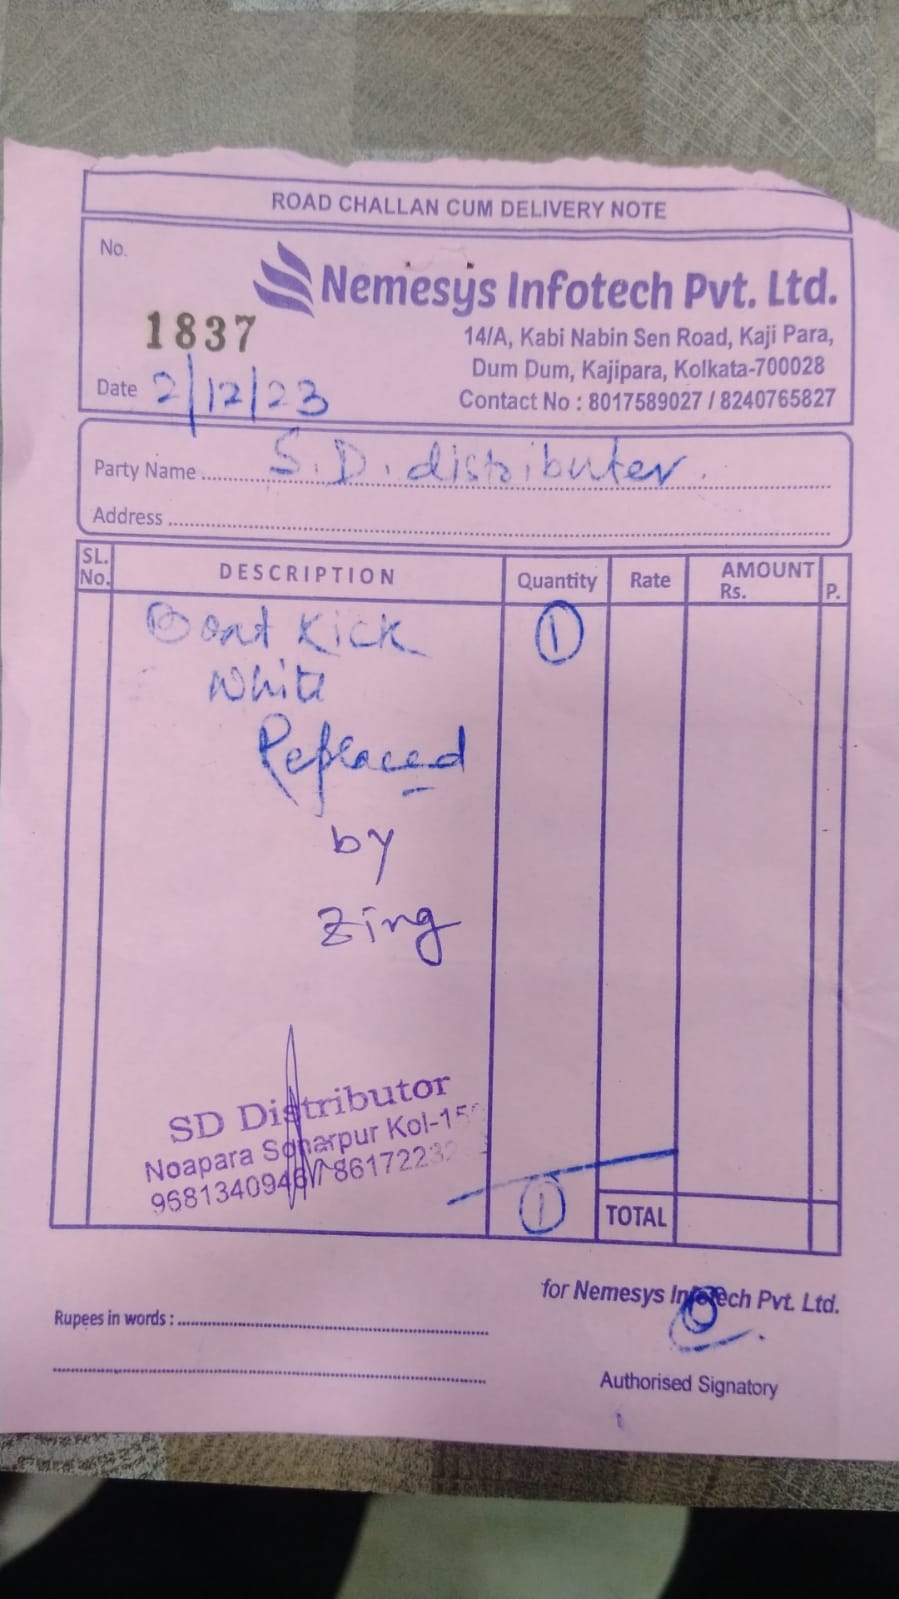 ROAD CHALLAN CUM DELIVERY NOTE
No.
1837
Nemesys Infotech Pvt. Ltd.
14/A, Kabi Nabin Sen Road, Kaji Para,
Dum Dum, Kajipara, Kolkata-700028
Contact No : 8017589027 / 8240765827
Date 2/12/23
Party Name S. D. distributer.
Address
SL. No. DESCRIPTION Quantity Rate AMOUNT Rs. P.
Boat Kick 1
White
Replaced
by
Zing
SD Distributor
Noapara Sonarpur Kol-15
9681340946 / 8617223
1 TOTAL
for Nemesys Infotech Pvt. Ltd.
Rupees in words :
Authorised Signatory